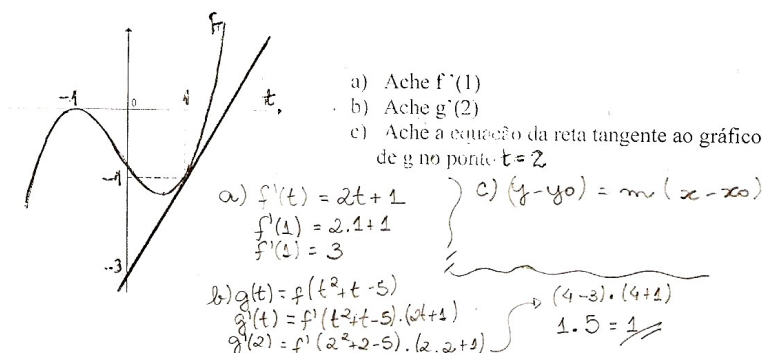 f
-1
0
1
t
-1
-3
a) Ache f'(1)
b) Ache g'(2)
c) Ache a equação da reta tangente ao gráfico
de g no ponto t = 2
a) f'(t) = 2t + 1
f'(1) = 2.1+1
f'(1) = 3
b) g(t) = f(t²+t-5)
g'(t) = f'(t²+t-5).(2t+1)
g'(2) = f'(2²+2-5).(2.2+1)
c) (y-y0) = m(x-x0)
(4-3).(4+1)
1.5 = 1